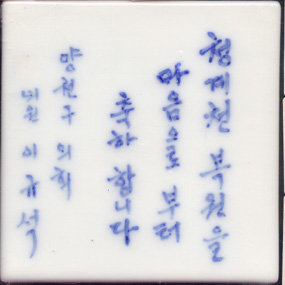 청계천 복원을
마음으로 부터
축하 합니다
양천구 의회
의원 이 규 석